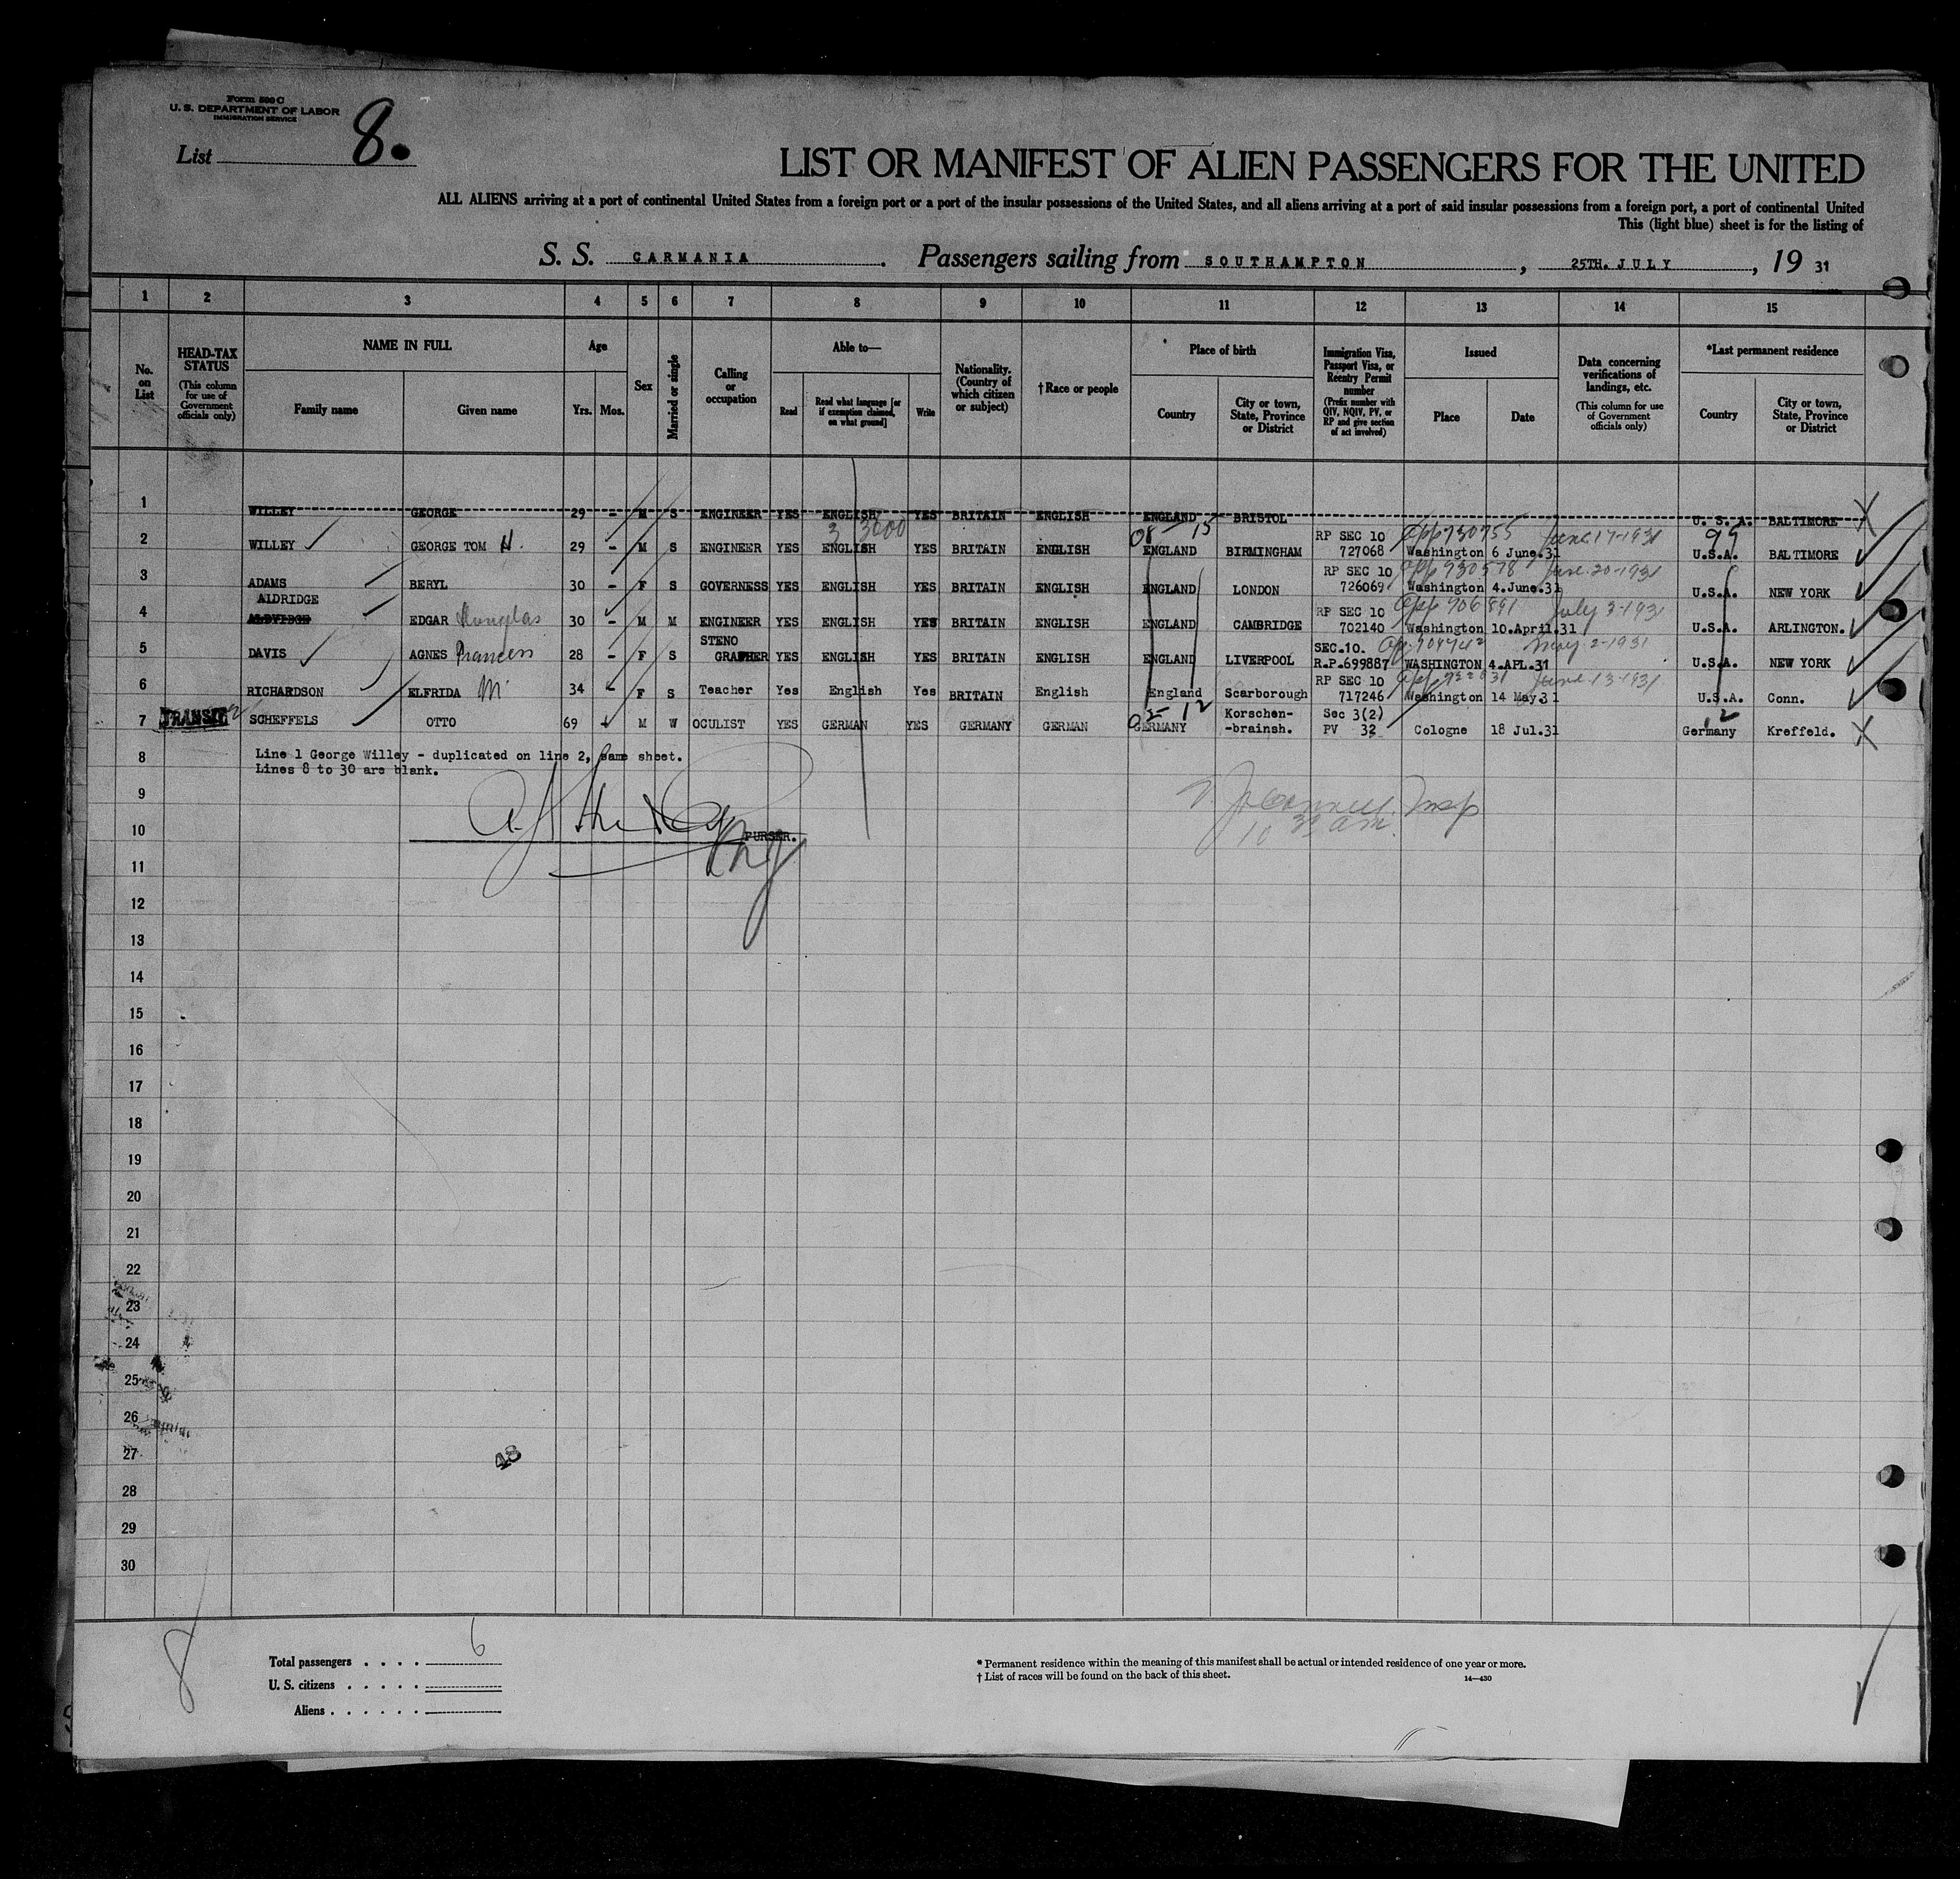 Form 500 C
U. S. DEPARTMENT OF LABOR
IMMIGRATION SERVICE
List 8.
LIST OR MANIFEST OF ALIEN PASSENGERS FOR THE UNITED
ALL ALIENS arriving at a port of continental United States from a foreign port or a port of the insular possessions of the United States, and all aliens arriving at a port of said insular possessions from a foreign port, a port of continental United
This (light blue) sheet is for the listing of
S. S. CARMANIA. Passengers sailing from SOUTHAMPTON, 25TH. JULY, 19 31
1 2 3 4 5 6 7 8 9 10 11 12 13 14 15
No. on List
HEAD-TAX STATUS
(This column for use of Government officials only)
NAME IN FULL
Family name Given name
Age
Yrs. Mos.
Sex
Married or single
Calling or occupation
Able to—
Read
Read what language [or if exemption claimed, on what ground]
Write
Nationality. (Country of which citizen or subject)
†Race or people
Place of birth
Country
City or town, State, Province or District
Immigration Visa, Passport Visa, or Reentry Permit number
(Prefix number with QIV, NQIV, PV, or RP and give section of act involved)
Issued
Place Date
Data concerning verifications of landings, etc.
(This column for use of Government officials only)
*Last permanent residence
Country
City or town, State, Province or District
1 WILLEY GEORGE 29 - M S ENGINEER YES ENGLISH YES BRITAIN ENGLISH ENGLAND BRISTOL U. S. A. BALTIMORE X
3 3000 08 - 15 RP SEC 10 App 730755 June 17-1931 99
2 WILLEY GEORGE TOM H. 29 - M S ENGINEER YES ENGLISH YES BRITAIN ENGLISH ENGLAND BIRMINGHAM 727068 Washington 6 June.31 U.S.A. BALTIMORE
RP SEC 10 App 730578 June 20-1931
3 ADAMS BERYL 30 - F S GOVERNESS YES ENGLISH YES BRITAIN ENGLISH ENGLAND LONDON 726069 Washington 4.June.31 U.S.A. NEW YORK
ALDRIDGE RP SEC 10 App 706891 July 3-1931
4 EDGAR Douglas 30 - M M ENGINEER YES ENGLISH YES BRITAIN ENGLISH ENGLAND CAMBRIDGE 702140 Washington 10.April.31 U.S.A. ARLINGTON.
STENO SEC.10. May 2-1931
5 DAVIS AGNES Frances 28 - F S GRAPHER YES ENGLISH YES BRITAIN ENGLISH ENGLAND LIVERPOOL R.P.699887 WASHINGTON 4.APL.31 U.S.A. NEW YORK
RP SEC 10 June 13-1931
6 RICHARDSON ELFRIDA M. 34 - F S Teacher Yes English Yes BRITAIN English England Scarborough 717246 Washington 14 May.31 U.S.A. Conn.
TRANSIT 02 - 12 Korschen- Sec 3(2) 12
7 SCHEFFELS OTTO 69 - M W OCULIST YES GERMAN YES GERMANY GERMAN GERMANY -brainsh. PV 32 Cologne 18 Jul.31 Germany Kreffeld. X
8 Line 1 George Willey - duplicated on line 2, same sheet.
Lines 8 to 30 are blank.
9
10 PURSER.
10 30 am.
11
12
13
14
15
16
17
18
19
20
21
22
23
24
25
26
27
48
28
29
30
8
Total passengers . . . . 6
U. S. citizens . . . . .
Aliens . . . . . .
* Permanent residence within the meaning of this manifest shall be actual or intended residence of one year or more.
† List of races will be found on the back of this sheet. 14—430